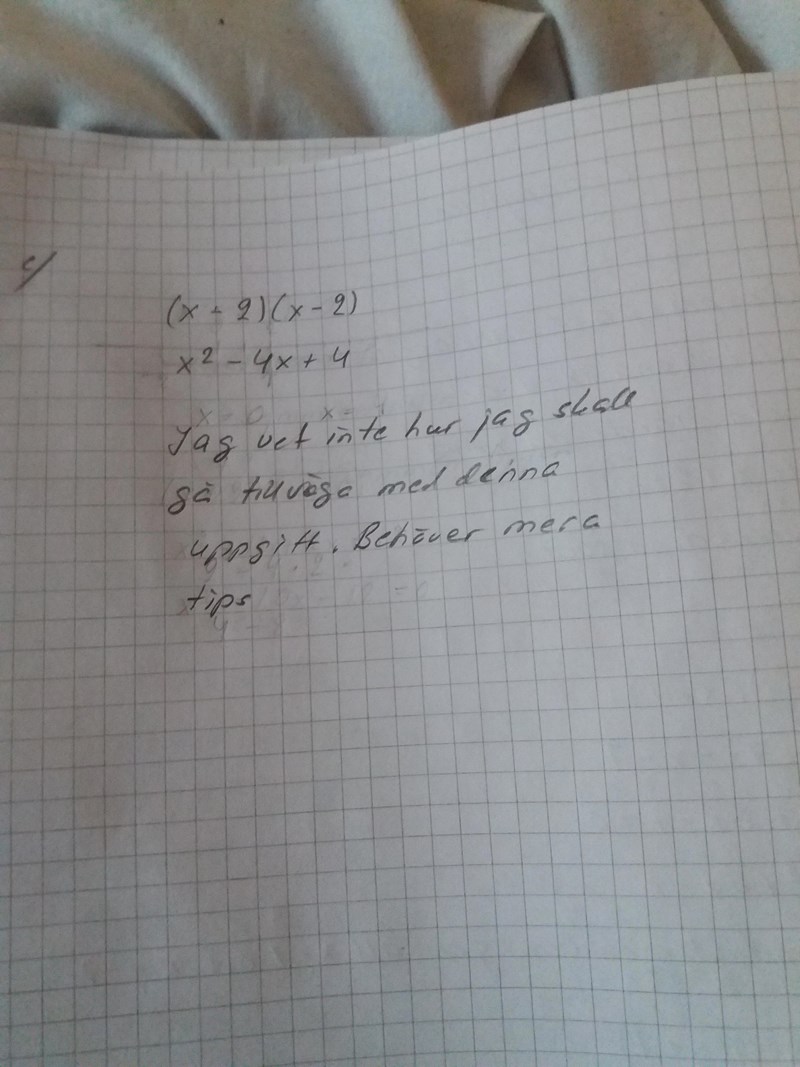 c/
(x - 2)(x - 2)
x² - 4x + 4
Jag vet inte hur jag skall
gå tillväga med denna
uppgift. Behöver mera
tips